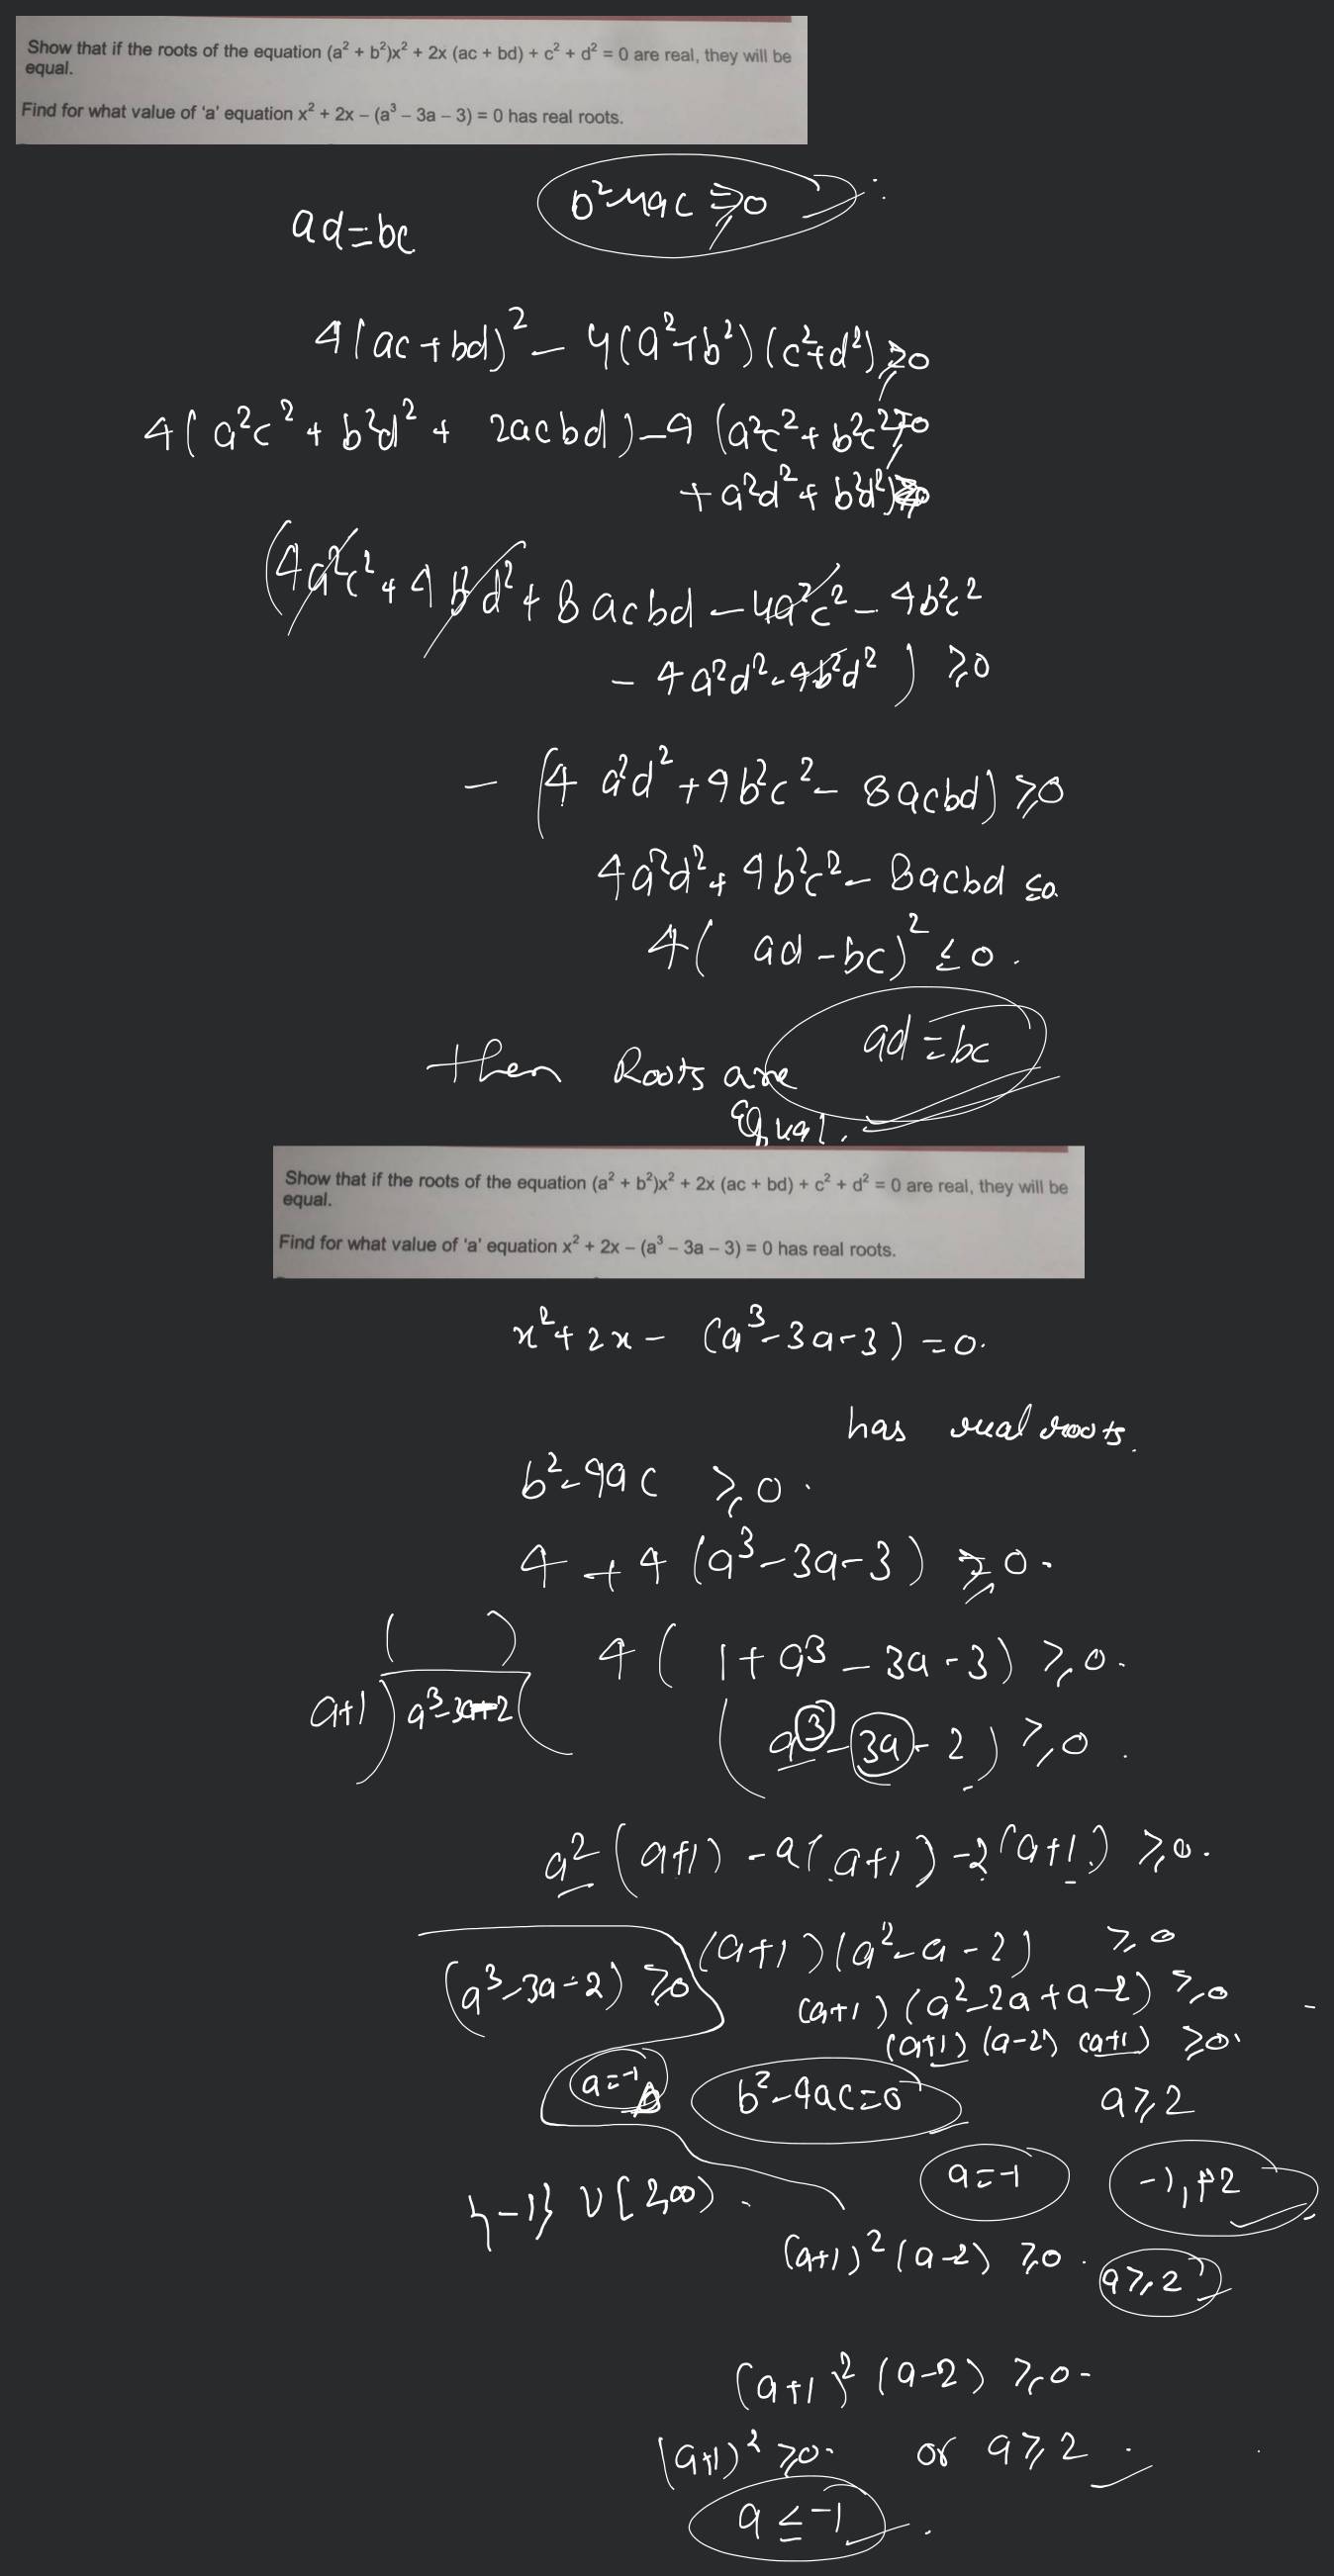 Show that if the roots of the equation (a² + b²)x² + 2x (ac + bd) + c² + d² = 0 are real, they will be
equal.
Find for what value of 'a' equation x² + 2x – (a³ – 3a – 3) = 0 has real roots.
b²-4ac ≥0
ad=bc
4(ac+bd)² - 4(a²+b²)(c²+d²)≥0
4(a²c² + b²d² + 2acbd) - 4(a²c² + b²c²
+ a²d² + b²d²)≥0
(4a²c² + 4b²d² + 8acbd - 4a²c² - 4b²c²
- 4a²d² - 4b²d²) ≥0
- (4a²d² + 4b²c² - 8acbd) ≥0
4a²d² + 4b²c² - 8acbd ≤0.
4(ad-bc)² ≤0.
ad=bc
then Roots are
Equal.
Show that if the roots of the equation (a² + b²)x² + 2x (ac + bd) + c² + d² = 0 are real, they will be
equal.
Find for what value of 'a' equation x² + 2x – (a³ – 3a – 3) = 0 has real roots.
x²+2x- (a³-3a-3) =0.
has real roots.
b²-4ac ≥0.
4+4(a³-3a-3) ≥0.
( ) 4(1+a³-3a-3) ≥0.
a+1) a³-3a-2( (a³-3a-2) ≥0.
a²(a+1) -a(a+1) -2(a+1) ≥0.
(a+1)(a²-a-2) ≥0
(a³-3a-2) ≥0 (a+1)(a²-2a+a-2) ≥0
(a+1)(a-2)(a+1) ≥0.
a=-1 b²-4ac=0 a≥2
a=-1 -1, 2
{-1} ∪ [2,∞).
(a+1)²(a-2) ≥0. a≥2
(a+1)²(a-2) ≥0-
(a+1)² ≥0. or a≥2
a ≤ -1.